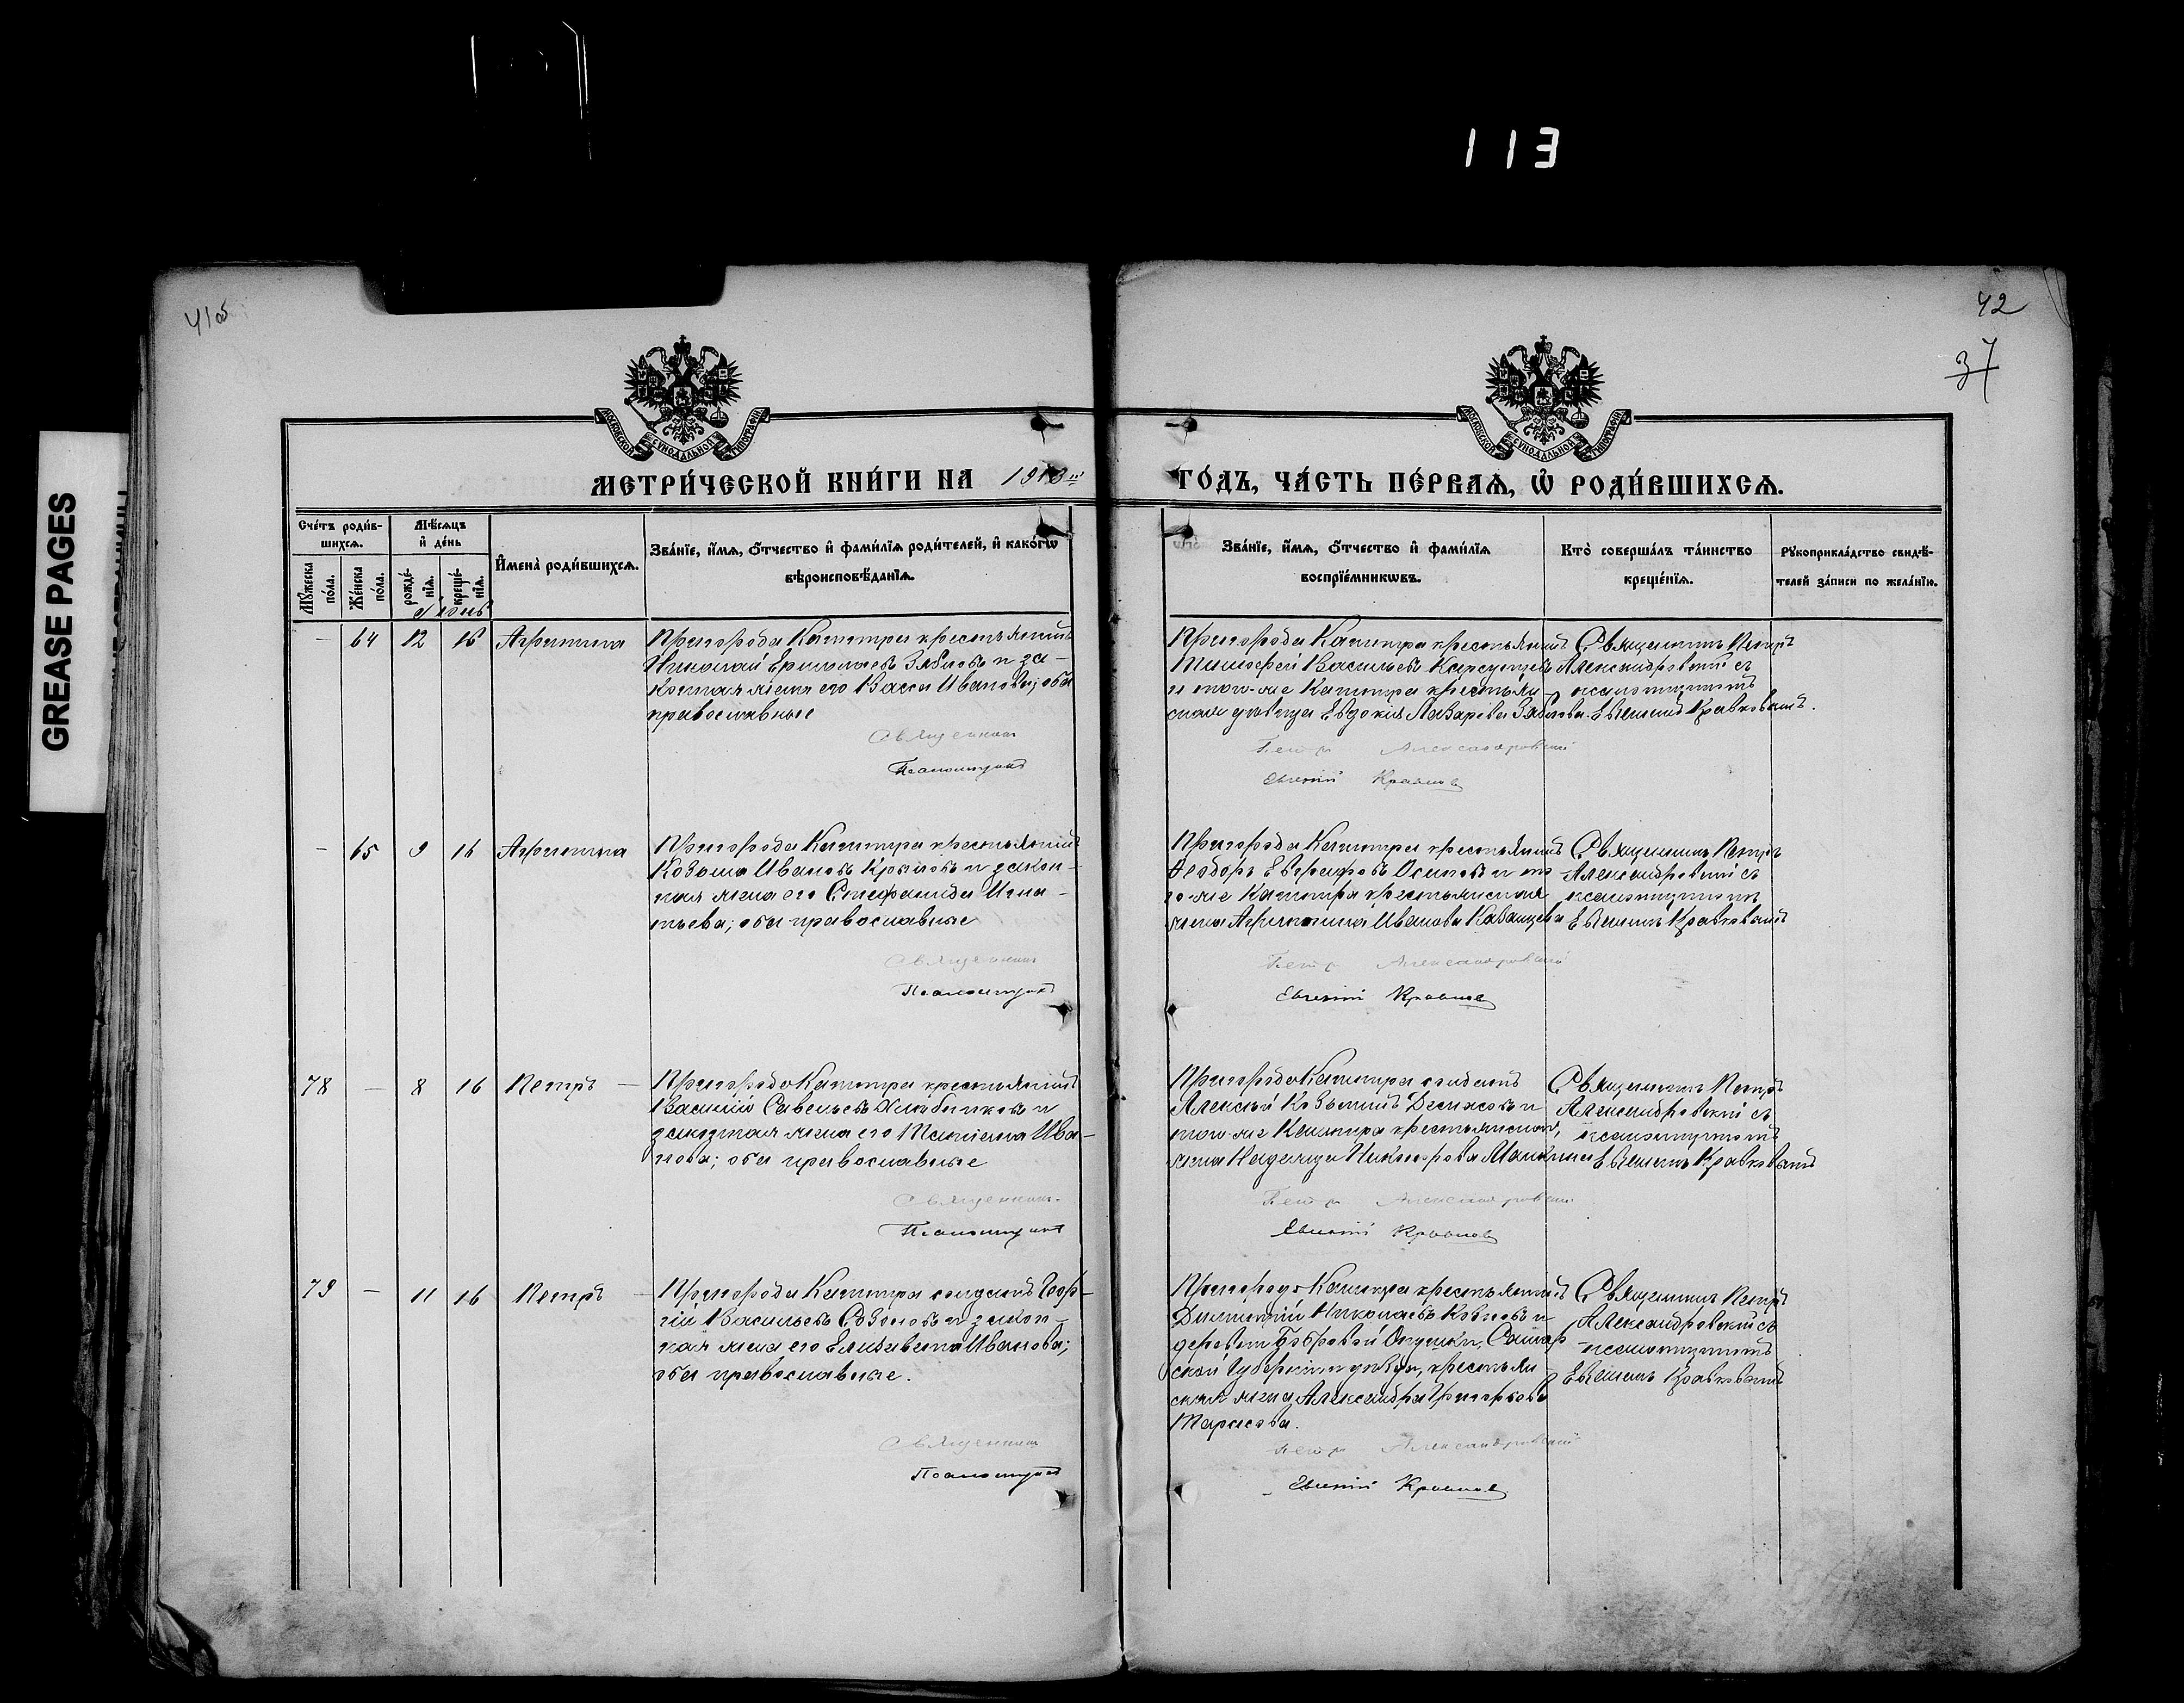 113
GREASE PAGES
41об
42
37
МОСКОВСКОЙ СѴНОДАЛЬНОЙ ТИПОГРАФІИ
МОСКОВСКОЙ СѴНОДАЛЬНОЙ ТИПОГРАФІИ
МЕТРИ́ЧЕСКОЙ КНИ́ГИ НА 1913й ГО́ДЪ, ЧА́СТЬ ПЕ́РВАѦ, Ѡ҆ РОДИ́ВШИХСѦ.
Сче́тъ роди́в-
шихсѧ.
Мꙋ́жеска по́ла.
Же́нска по́ла.
Мѣ́сѧцъ
и҆ де́нь
рожде́-нїѧ.
креще́-нїѧ.
И҆мена̀ роди́вшихсѧ.
Зва́нїе, и҆́мѧ, ѻ҆́тчество и҆ фами́лїѧ роди́телей, и҆ како́гѡ
вѣроисповѣ́данїѧ.
Зва́нїе, и҆́мѧ, ѻ҆́тчество и҆ фами́лїѧ
воспрїе́мникѡвъ.
Кто̀ соверша́лъ та́инство
креще́нїѧ.
Рꙋкоприкла́дство свидѣ́-
телей за́писи по жела́нїю.
Іюнь
— 64 12 16 Агрипина
Пригорода Каштпра крестьянинъ
Николай Ермолаевъ Зябловъ и за-
конная жена его Васса Иванова; оба
православные
Пригорода Каштпра крестьянинъ
Тимофей Васильевъ Карсунцевъ
и того-же Каштпра крестьян-
ская дѣвица Евдокія Лазарева Зяблова.
Священникъ Петръ
Александровскій съ
псаломщикомъ
Евгеніемъ Кравковымъ.
Священникъ Петръ Александровскій
Псаломщикъ Евгеній Кравковъ
— 65 9 16 Агрипина
Пригорода Каштпра крестьянинъ
Козьма Ивановъ Крыловъ и закон-
ная жена его Стефанида Игна-
тьева; оба православные
Пригорода Каштпра крестьянинъ
Ѳеодоръ Евграфовъ Осиповъ и то-
го-же Каштпра крестьянская
жена Агрипина Иванова Казанцева
Священникъ Петръ
Александровскій съ
псаломщикомъ
Евгеніемъ Кравковымъ
Священникъ Петръ Александровскій
Псаломщикъ Евгеній Кравковъ
78 — 8 16 Петръ —
Пригорода Каштпра крестьянинъ
Василій Савельевъ Хлѣбниковъ и
законная жена его Татіана Ива-
нова; оба православные
Пригорода Каштпра солдатъ
Алексѣй Козьминъ Денисовъ и
того-же Каштпра крестьянская
жена Надежда Никифорова
Священникъ Петръ
Александровскій съ
псаломщикомъ
Евгеніемъ Кравковымъ
Священникъ Петръ Александровскій
Псаломщикъ Евгеній Кравковъ
79 — 11 16 Петръ —
Пригорода Каштпра солдатъ Геор-
гій Васильевъ Созоновъ и закон-
ная жена его Елизавета Иванова;
оба православные.
Пригорода Каштпра крестьянинъ
Димитрій Николаевъ Ковловъ и
деревни Бобровой Опушки, Самар
ской губерніи и уѣзда, крестьян-
ская жена Александра Григорьева
Тарасова.
Священникъ Петръ
Александровскій съ
псаломщикомъ
Евгеніемъ Кравковымъ
Священникъ Петръ Александровскій
Псаломщикъ Евгеній Кравковъ